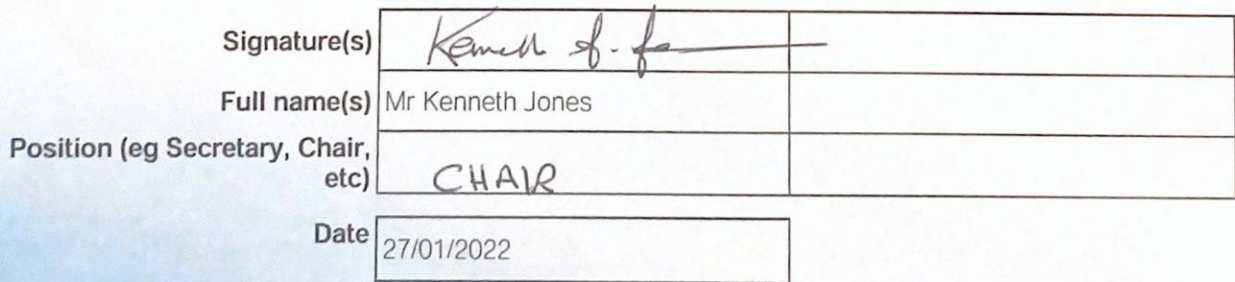 Signature(s)
Full name(s) Mr Kenneth Jones
Position (eg Secretary, Chair,
etc) CHAIR
Date 27/01/2022